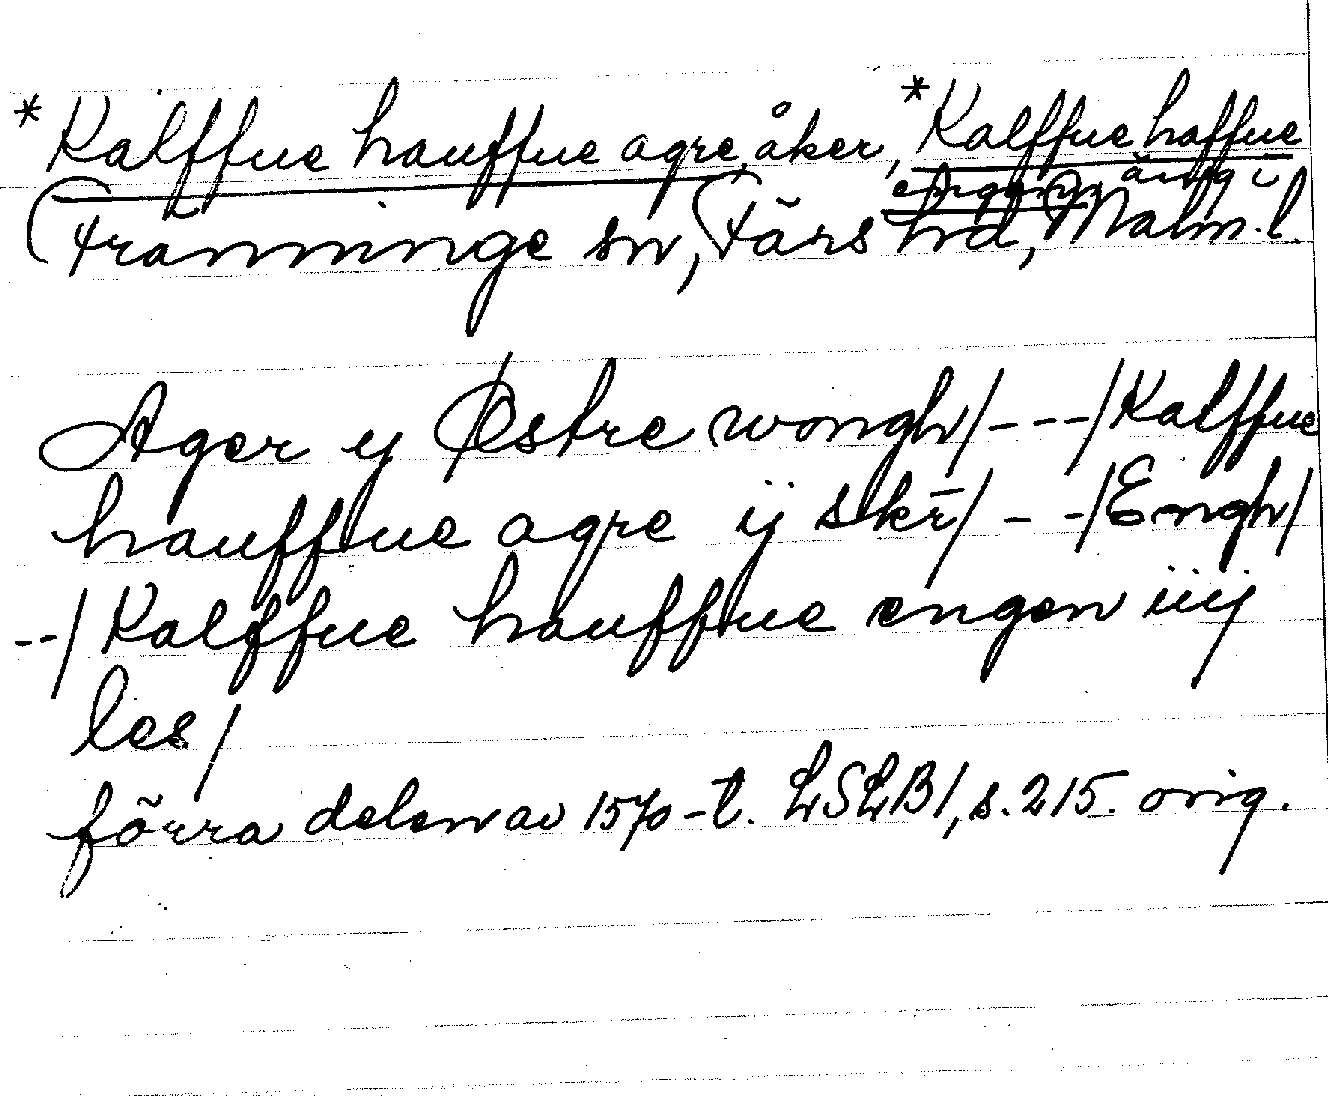 *Kalffue hauffue agre, åker, *Kalffue haffue
engen, äng i
Tranninge sn, Färs hd, Malm. l.
Ager y Østre wongh/---/Kalffue
hauffue agre ij skr̄/ - -/Engh/
--/Kalffue hauffue engen iiij
les/
förra delen av 1570-t. LSLB1, s. 215. orig.